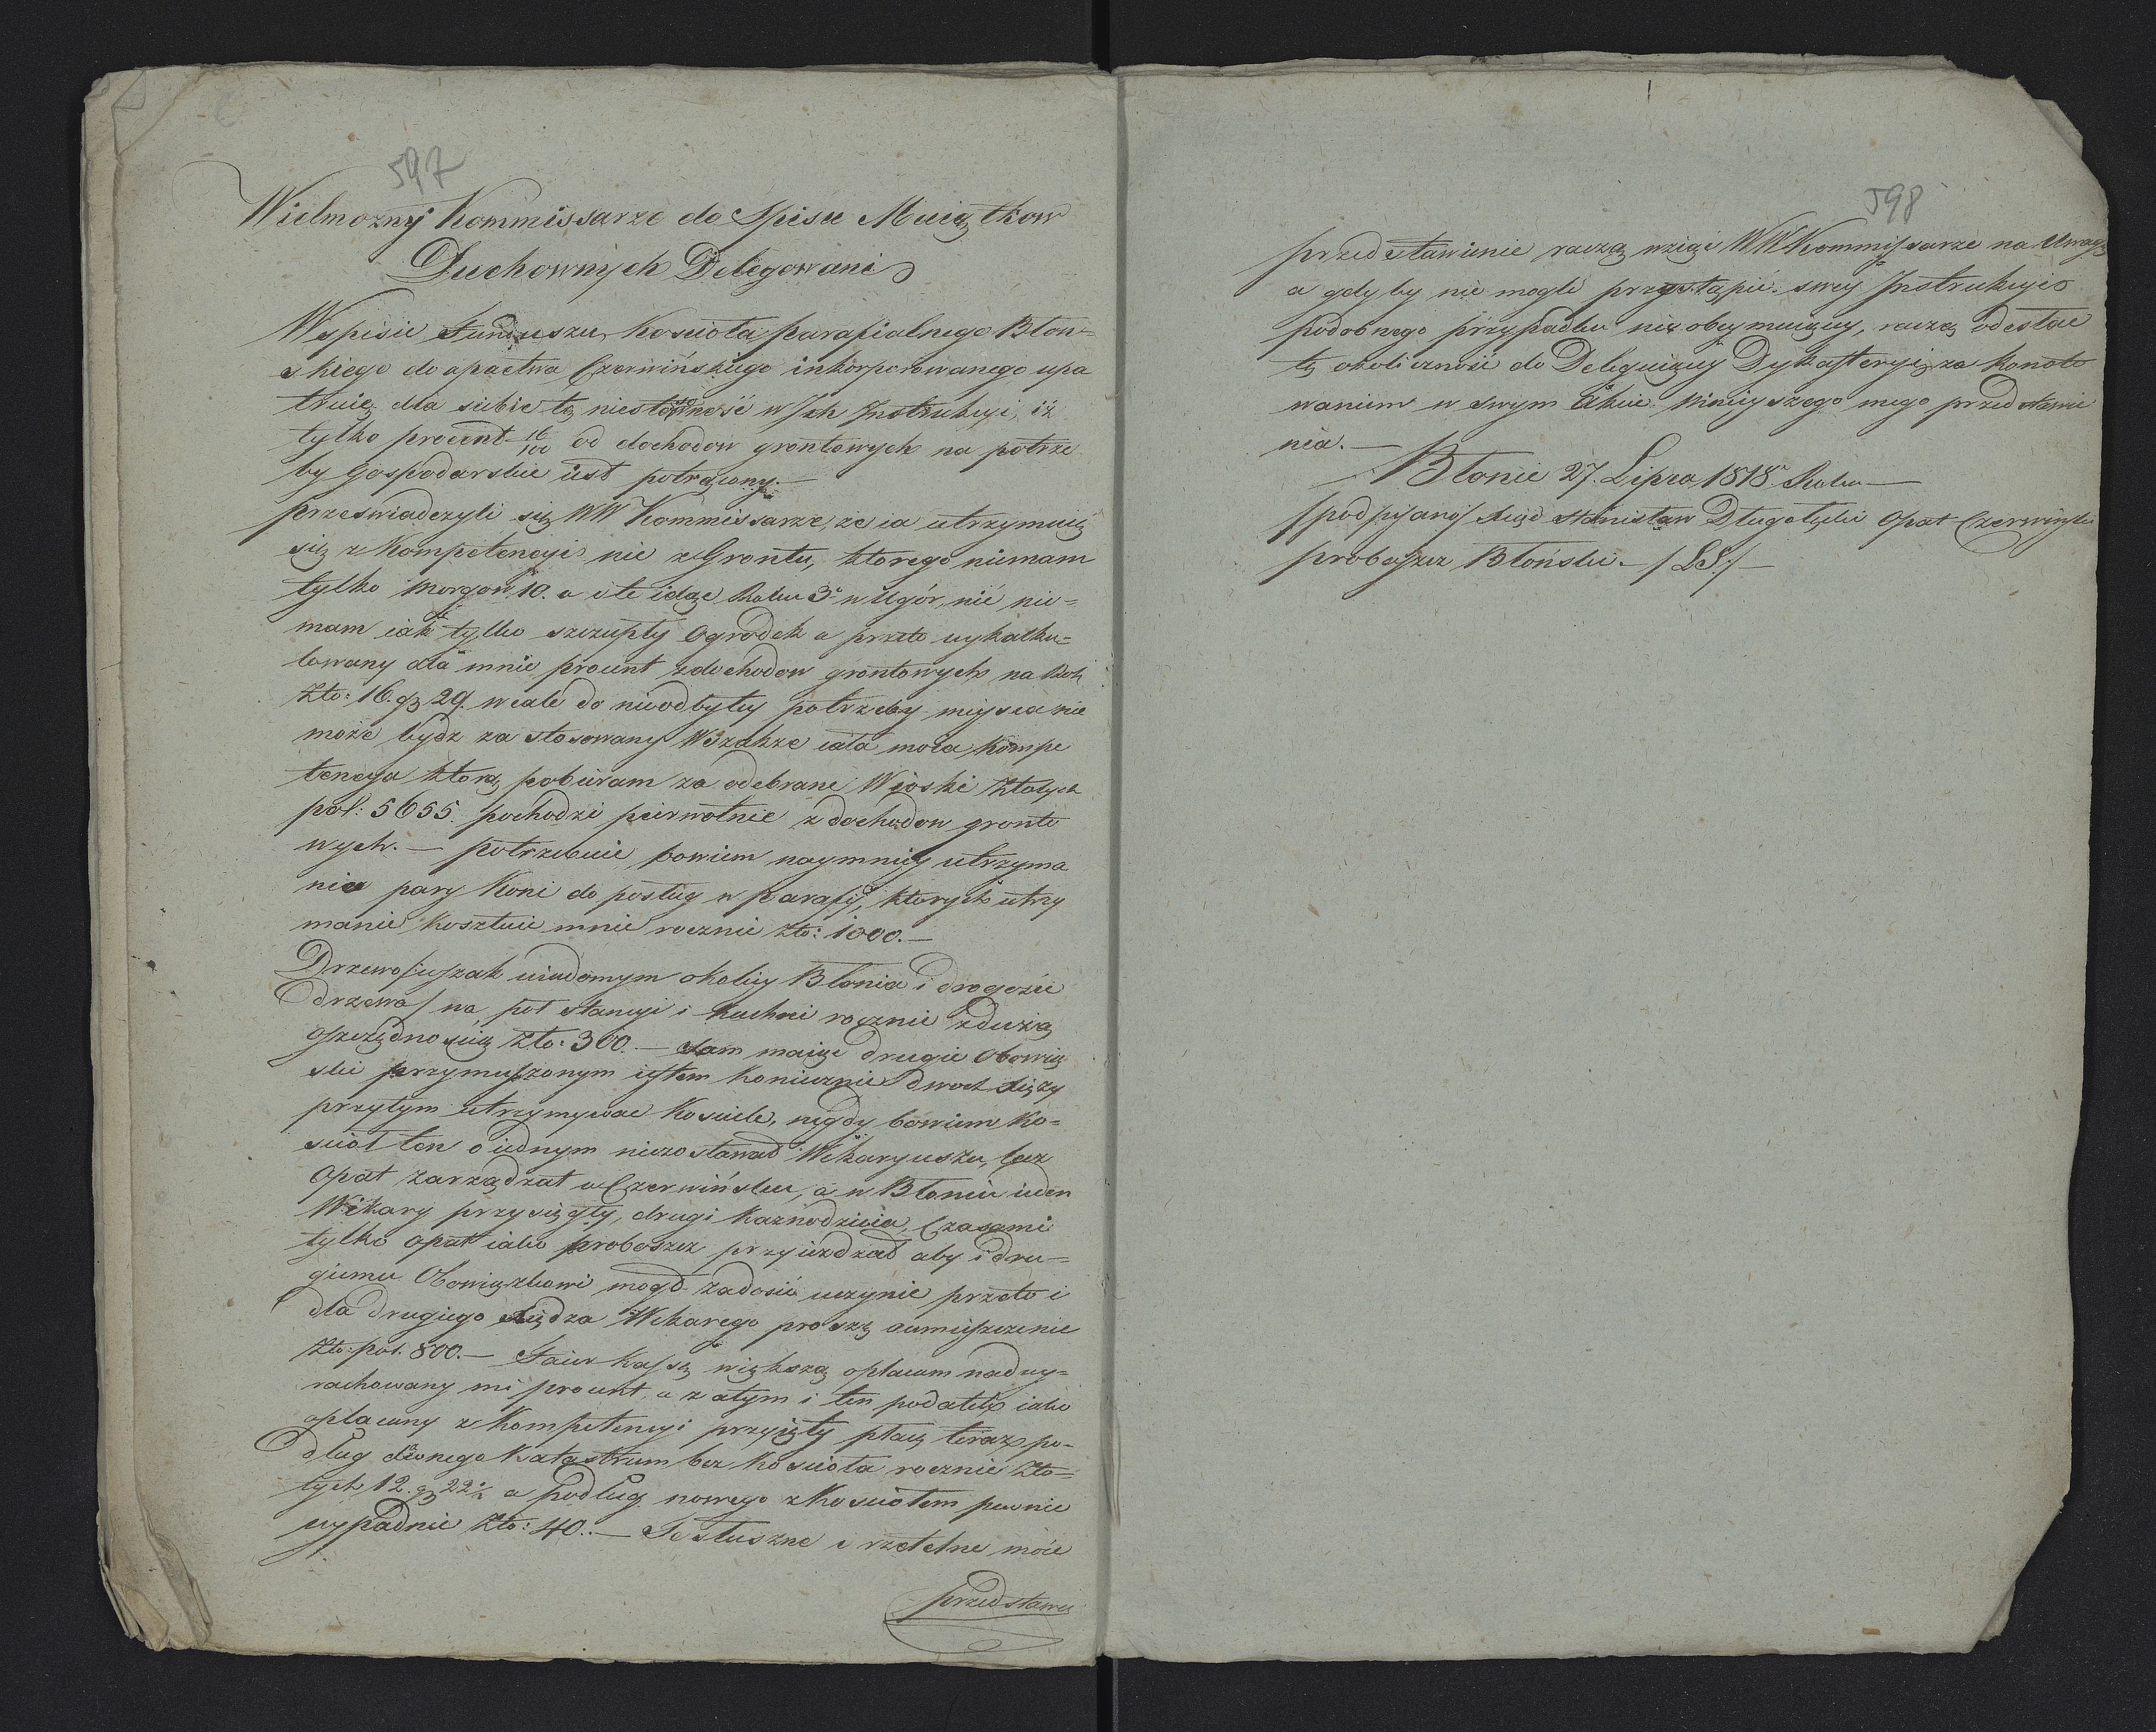 597
Wielmozny Kommissarze do Spisu Maiątkow
Duchownych Delegowani
W spisie Funduszu Kościoła parafialnego Błon=
skiego do opactwa Czerwińskiego inkorporowanego upa
truię dla siebie tę niestosowność w Ich Instrukcyi, iż
tylko procent 10/100 od dochodow grontowych na potrze
by gospodarskie iest potrącony.—
przeswiadczyli się WW Kommissarze, że ia utrzymuię
się z Kompetencyi nie z Grontu, ktorego niemam
tylko Morgow 10. a i te idąc Roku 3o w Ugór, nic nie=
mam iak tylko szczupły Ogrodek a przeto wykalku=
lowany dla mnie procent z dochodow grontowych na Rok
Zło: 16. gr 29. wcale do nieodbyłey potrzeby mieysca nie
może bydz za stosowany Wszakże cała moia Kompe
tencya którą pobieram za odebrane Wioski Złotych
pol: 5655. pochodzi pierwotnie z dochodow gronto
wych.— potrzebuie bowiem naymniey utrzyma
nia pary Koni do posług w parafij, ktorych utrzy
manie kosztuie mnie rocznie Zło: 1000.—
Drzewo/: iuszak wiadomym okolicy Błonia i drogośći
drzewa/ na pol stancyi i Kuchni rocznie z dużą
oszczędnością Zło: 300.— Sam maiąc drugie Obowią
ski przymuszonym iestem koniecznie dwoch Xięży
przytym utrzymywac Kościele, nigdy bowiem Ko=
sciół ten o iednym niezostawał Wikaryuszu, lecz
Opat zarządzał w Czerwińsku, a w Błoniu ieden
Wikary przysięgły, drugi Kaznodzieia, Czasami
tylko Opat iako proboszcz przyieżdzał aby i dru=
giemu Obowiązkowi mogł zadosić uczynic przeto i
dla drugiego Xiędza Wikarego proszę o umieszczenie
Zło: pol. 800.— Taiw Kassę większą opłacam nad wy=
rachowany mi procent, a zatym i ten podatek iako
opłacany z Kompetencyi przyięty płacę teraz po=
dług danego Katastrum bez Kościoła rocznie Zło=
tych 12. gr 22½ a podług nowego z Kosciołem pewnie
wypadnie Zło: 40.— Te słuszne i rzetelne moie
przedstawie
598
przedstawienie raczą wziąć WW Kommissarze na Uwagę
a gdy by nie mogli przystąpić swey Instrukcyi
podobnego przypadku nie obeymuiącey, raczą odesłac
tę okoliczność do Deleguiącey Dykasteryi za konoto
waniem w swym Akcie Ninieyszego mego przedstawie
nia.—
Błonie 27. Lipca 1818. Roku—
/podpisano/ Xiądz Stanisław Długołęcki Opat Czerwiński
proboszcz Błoński.— /LS:/—